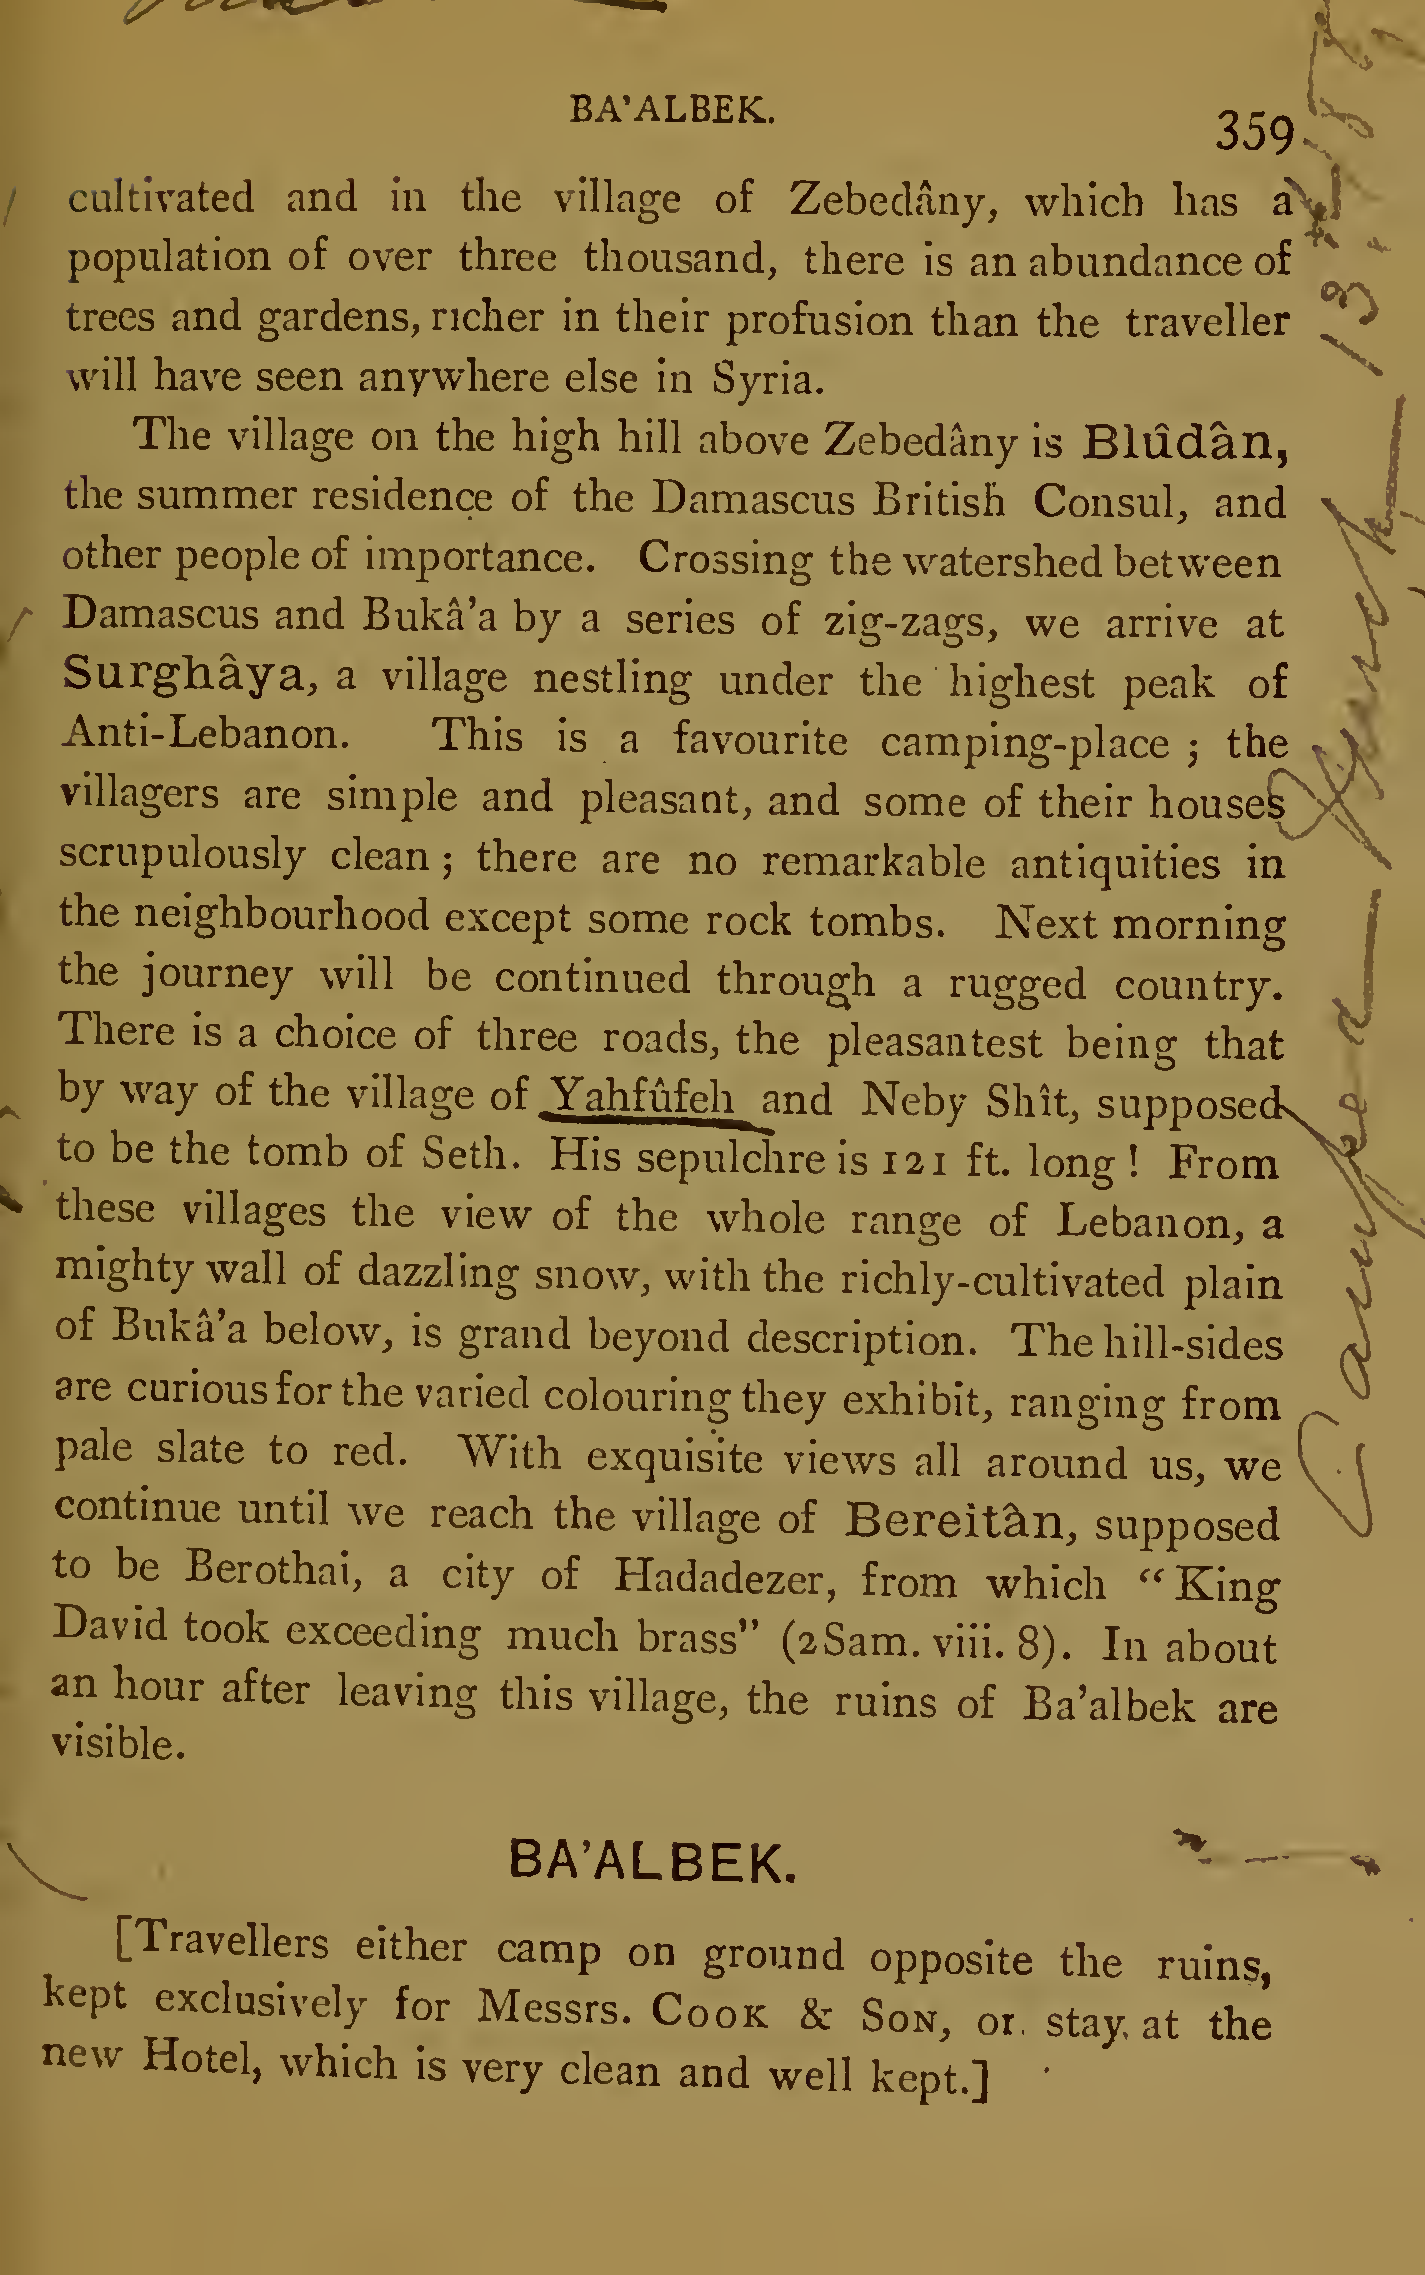 BA'ALBEK.
359
cultivated and in the village of Zebedâny, which has a
population of over three thousand, there is an abundance of
trees and gardens, richer in their profusion than the traveller
will have seen anywhere else in Syria.
The village on the high hill above Zebedâny is Blûdân,
the summer residence of the Damascus British Consul, and
other people of importance. Crossing the watershed between
Damascus and Bukâ'a by a series of zig-zags, we arrive at
Surghâya, a village nestling under the highest peak of
Anti-Lebanon. This is a favourite camping-place ; the
villagers are simple and pleasant, and some of their houses
scrupulously clean ; there are no remarkable antiquities in
the neighbourhood except some rock tombs. Next morning
the journey will be continued through a rugged country.
There is a choice of three roads, the pleasantest being that
by way of the village of Yahfûfeh and Neby Shît, supposed
to be the tomb of Seth. His sepulchre is 121 ft. long ! From
these villages the view of the whole range of Lebanon, a
mighty wall of dazzling snow, with the richly-cultivated plain
of Bukâ'a below, is grand beyond description. The hill-sides
are curious for the varied colouring they exhibit, ranging from
pale slate to red. With exquisite views all around us, we
continue until we reach the village of Bereitân, supposed
to be Berothai, a city of Hadadezer, from which "King
David took exceeding much brass" (2 Sam. viii. 8). In about
an hour after leaving this village, the ruins of Ba'albek are
visible.
BA'ALBEK.
[Travellers either camp on ground opposite the ruins,
kept exclusively for Messrs. COOK & SON, or stay at the
new Hotel, which is very clean and well kept.]